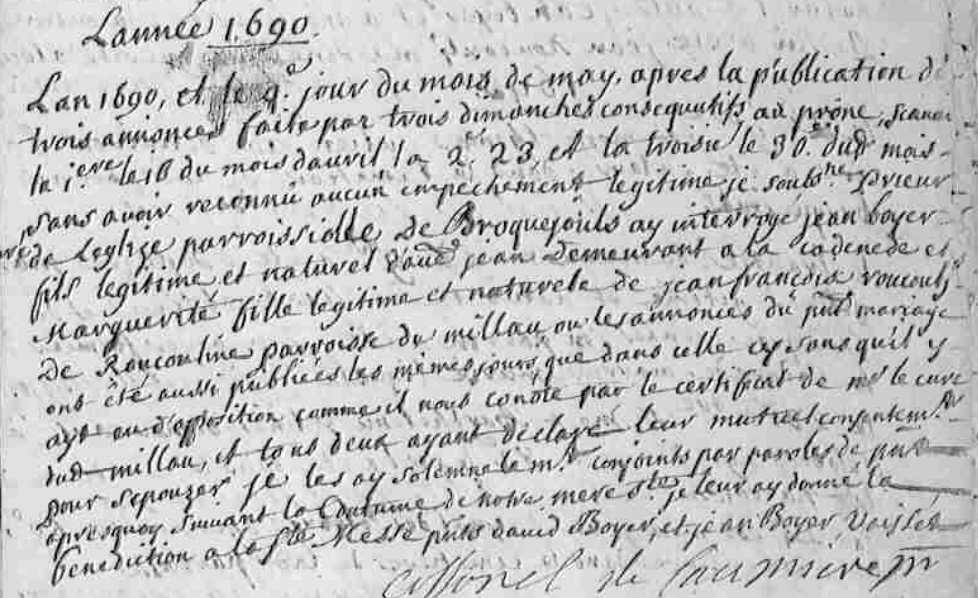 Lannée 1690.
Lan 1690, et le 9.e jour du mois de may, apres la publication de
trois annonces faite par trois dimanches consequutifs au prône, scavoir
la 1.ere le 16 du mois dauril la 2.e 23, et la troisie le 30.e dud mois
sans avoir reconnû aucun empechement legitime je soubs.ne prieur
de Leglize parroissiolle de Broquejouls ay interrogé jean boyer
fils legitime et naturel jean demeurant a la cadenede et
Marguerite fille legitime et naturele de jean françois roucouls
de Roucouline parroisse de millau ou les annonces du pnt mariage
ont été aussi publiées les mêmes jours que dans celle cy sans qu'il y
aye eu d'opposition comme il nous conste par le certificat de mr le curé
dud millau, et tous deux ayant declaré leur mutuel consentem.t
pour sepouzer je les ay solemnelem.t conjoints par paroles de pnt
apres quoy suivant la Coutume de notre mere s.te je leur ay donné la
benediction a la s.te Messe pnts david Boyer, et jean Boyer Vaisset